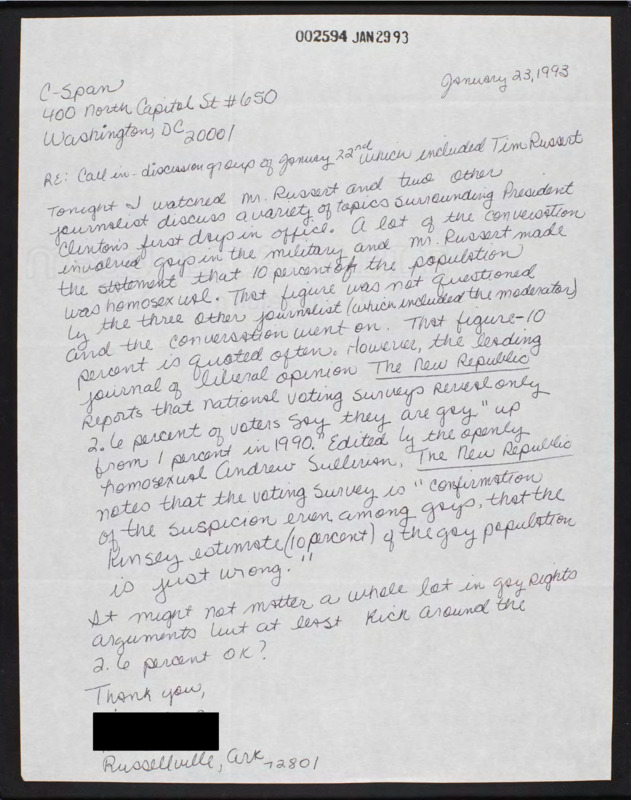 002594 JAN 29 93
January 23, 1993
C-Span
400 North Capitol St #650
Washington, DC 20001
RE: Call in-discussion group of January 22nd which included Tim Russert
Tonight I watched Mr. Russert and two other
journalist discuss a variety of topics surrounding President
Clinton's first days in office. A lot of the conversation
involved gays in the military and Mr. Russert made
the statement that 10 percent of the population
was homosexual. That figure was not questioned
by the three other journalist (which included the moderator)
and the conversation went on. That figure-10
percent is quoted often. However, the leading
journal of liberal opinion The New Republic
Reports that national voting surveys reveal only
2.6 percent of voters say they are gay "up
from 1 percent in 1990." Edited by the openly
homosexual Andrew Sullivan, The New Republic
notes that the voting survey is "confirmation
of the suspicion even among gays, that the
Kinsey estimate (10 percent) of the gay population
is just wrong."
It might not matter a whole lot in gay rights
arguments but at least kick around the
2.6 percent OK?
Thank you,
Russellville, Ark 72801